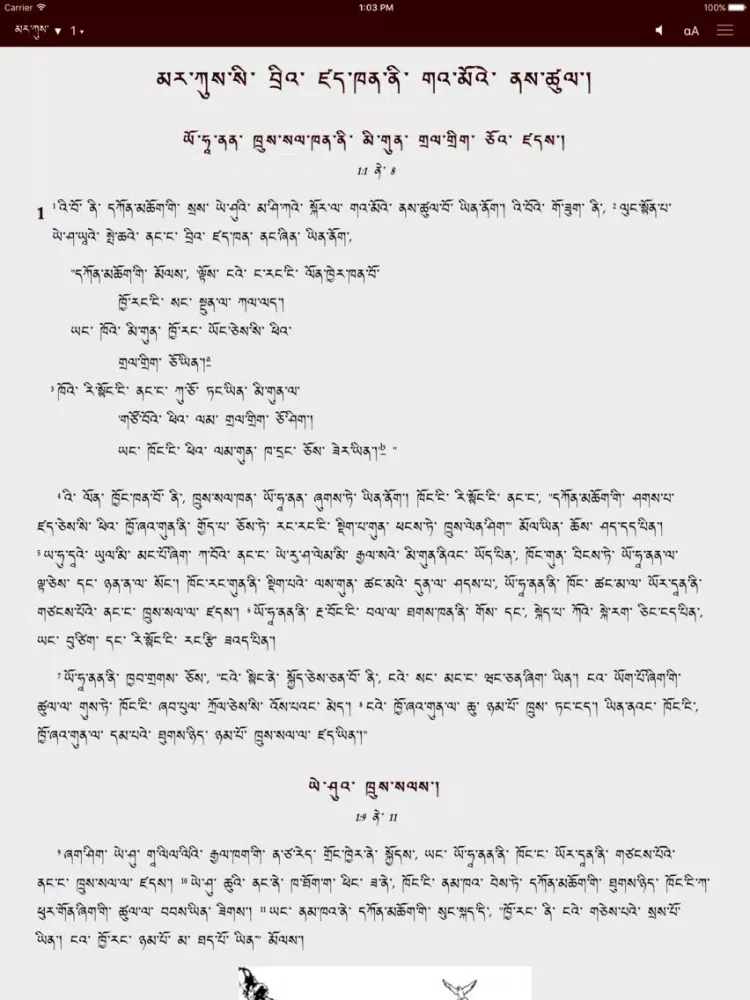 Carrier 1:03 PM 100%
མར་ཀུས་ ▼ 1 ▾ αA
མར་ཀུས་སི་ བྲིའ་ ཛད་ཁན་ནི་ གའ་མོའེ་ ནས་ཚུལ།
ཡོ་ཧཱ་ནན་ ཁྲུས་སལ་ཁན་ནི་ མི་གུན་ གྲལ་གྲིག་ ཅོའ་ ཛདས།
1:1 ནེ་ 8
1 ¹འི་བོ་ ནི་ དཀོན་མཆོག་གི་ སྲས་ ཡེ་ཤུའི་ མ་ཤི་ཀའེ་ སྐོར་ལ་ གའ་མོའེ་ ནས་ཚུལ་བོ་ ཡིན་ནོག། འི་བོའེ་ གོ་ཟུག་ ནི་, ²ལུང་སྟོན་པ་
ཡེ་ཤ་ཡཱའེ་ སྤེ་ཆའེ་ ནང་ང་ བྲིའ་ ཛད་ཁན་ ནང་ཞིན་ ཡིན་ནོག་,
"དཀོན་མཆོག་གི་ མོལས་, 'ལྟོས་ ངའེ་ ང་རང་ངི་ ལོན་ཁྱེར་ཁན་བོ་
ཁྱོ་རང་ངི་ སང་ སྔུན་ལ་ ཀལ་ལད།
ཡང་ ཁོའེ་ མི་གུན་ ཁྱོ་རང་ ཡོང་ཅེས་སི་ ཕིའ་
གྲལ་གྲིག་ ཅོ་ཡིན།a
³ཁོའེ་ རི་སྟོང་ངི་ ནང་ང་ ཀུ་ཅོ་ ཏང་ཡིན་ མི་གུན་ལ་
'གཙོ་བོའེ་ ཕིའ་ ལམ་ གྲལ་གྲིག་ ཅོ་ཤིག།
ཡང་ ཁོང་ངི་ ཕིའ་ ལམ་གུན་ ཁ་དྲང་ ཅོས་ ཟེར་ཡིན།b "
⁴འི་ ལོན་ ཁྱོང་ཁན་བོ་ ནི་, ཁྲུས་སལ་ཁན་ ཡོ་ཧཱ་ནན་ ཞུགས་ཏེ་ ཡིན་ནོག། ཁོང་ངི་ རི་སྟོང་ངི་ ནང་ང་, "དཀོན་མཆོག་གི་ ཤགས་པ་
ཛད་ཅེས་སི་ ཕིའ་ ཁྱོ་ཞའ་གུན་ནི་ གྱོད་པ་ ཅོས་ཏེ་ རང་རང་ངི་ སྡིག་པ་གུན་ ཕངས་ཏེ་ ཁྲུས་ལེན་ཤིག་" མོལ་ཡིན་ ཆོས་ ཤད་དད་པིན།
⁵ཡ་ཧུ་དཱའེ་ ཡུལ་མི་ མང་པོ་ཞིག་ ཀ་བོའེ་ ནང་ང་ ཡེ་རུ་ཤ་ལེམ་མི་ རྒྱལ་སའེ་ མི་གུན་ནིའང་ ཡོད་པིན་, ཁོང་གུན་ བིངས་ཏེ་ ཡོ་ཧཱ་ནན་ལ་
ལྟ་ཅེས་ དང་ ཉན་ནལ་ སོང་། ཁོང་རང་གུན་ནི་ སྡིག་པའེ་ ལས་གུན་ ཚང་མའེ་ དུན་ལ་ ཤདས་པ་, ཡོ་ཧཱ་ནན་ནི་ ཁོང་ ཚང་མ་ལ་ ཡོར་དཱན་ནི་
གཙངས་པོའེ་ ནང་ང་ ཁྲུས་སལ་ལ་ ཛདས། ⁶ཡོ་ཧཱ་ནན་ནི་ རྔ་བོང་ངི་ བལ་ལ་ ཐགས་ཁན་ནི་ གོས་ དང་, སྐེད་པ་ ཀོའེ་ སྐེ་རག་ ཅིང་ངད་པིན་,
ཡང་ བུ་ཙིག་ དང་ རི་སྟོང་ངི་ རང་རྩི་ ཟའད་པིན།
⁷ཡོ་ཧཱ་ནན་ནི་ ཁྱབ་གྲགས་ ཅོས་, "ངའེ་ སྟིང་ནེ་ སྐྱོད་ཅེས་ཅན་བོ་ ནི་, ངའེ་ སང་ མང་ང་ ཝང་ཅན་ཞིག་ ཡིན། ངའ་ ཡོག་པོ་ཞིག་གི་
ཚུལ་ལ་ གུས་ཏེ་ ཁོང་ངི་ ཞབ་པུལ་ ཀྲོལ་ཅེས་སི་ འོས་པའང་ མེད། ⁸ངའེ་ ཁྱོ་ཞའ་གུན་ལ་ ཆུ་ ཉམ་པོ་ ཁྲུས་ ཏང་ངད། ཡིན་ནའང་ ཁོང་ངི་,
ཁྱོ་ཞའ་གུན་ལ་ དམ་པའེ་ ཐུགས་ཉིད་ ཉམ་པོ་ ཁྲུས་སལ་ལ་ ཛད་ཡིན།"
ཡེ་ཤུའ་ ཁྲུས་སལས།
1:9 ནེ་ 11
⁹ཞག་ཤིག་ ཡེ་ཤུ་ གཱ་ལིལ་ལིའི་ རྒྱལ་ཁག་གི་ ན་ཙ་རེད་ གྲོང་ཁྱེར་ནེ་ སྐྱོདས་, ཡང་ ཡོ་ཧཱ་ནན་ནི་ ཁོང་ང་ ཡོར་དཱན་ནི་ གཙངས་པོའེ་
ནང་ང་ ཁྲུས་སལ་ལ་ ཛདས། ¹⁰ཡེ་ཤུ་ ཆུའི་ ནང་ནེ་ ཁ་ཐོག་ག་ ཕིང་ ཟ་ནེ་, ཁོང་ངི་ ནམ་ཁའ་ བེས་ཏེ་ དཀོན་མཆོག་གི་ ཐུགས་ཉིད་ ཁོང་ངི་ཀ་
ཕུར་གོན་ཞིག་གི་ ཚུལ་ལ་ བབས་ཡིན་ ཟིགས། ¹¹ཡང་ ནམ་ཁའ་ནེ་ དཀོན་མཆོག་གི་ སུང་སྐད་དི་, "ཁྱོ་རང་ ནི་ ངའེ་ གཅེས་པའེ་ སྲས་པོ་
ཡིན། ངའ་ ཁྱོ་རང་ ཉམ་པོ་ མ་ ཐད་པོ་ ཡིན་" མོལས།